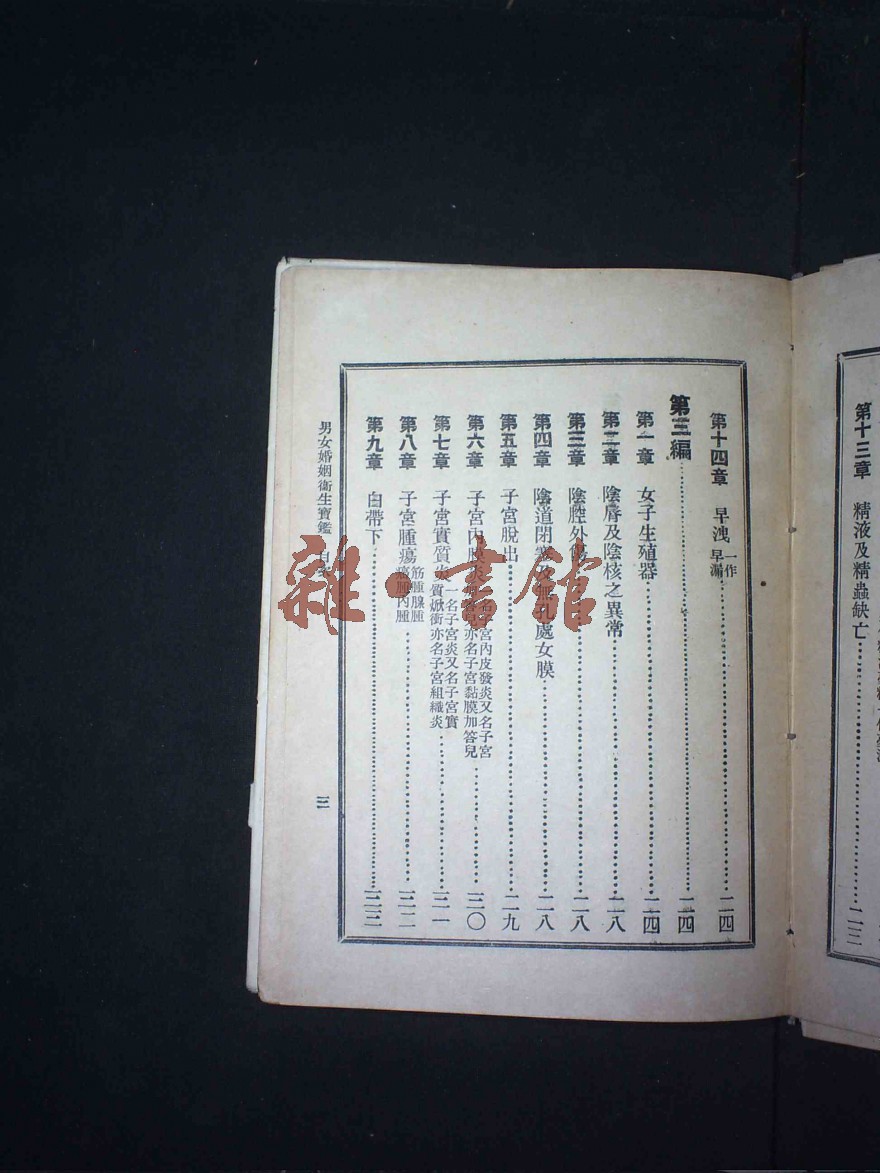 第十三章　精液及精蟲缺亡…二三
第十四章　早洩一作早漏…二四
第三編…二四
第一章　女子生殖器…二四
第二章　陰脣及陰核之異常…二八
第三章　陰腔外傷…二八
第四章　陰道閉塞及無孔處女膜…二八
第五章　子宮脫出…二九
第六章　子宮內膜炎一名子宮內皮發炎又名子宮加答兒亦名子宮黏膜加答兒…三〇
第七章　子宮實質炎一名子宮炎又名子宮實質焮衝亦名子宮組織炎…三一
第八章　子宮腫瘍筋腫腺腫癌腫肉腫…三二
第九章　白帶下…三三
男女婚姻衞生寶鑑　目次　三
雜·書館